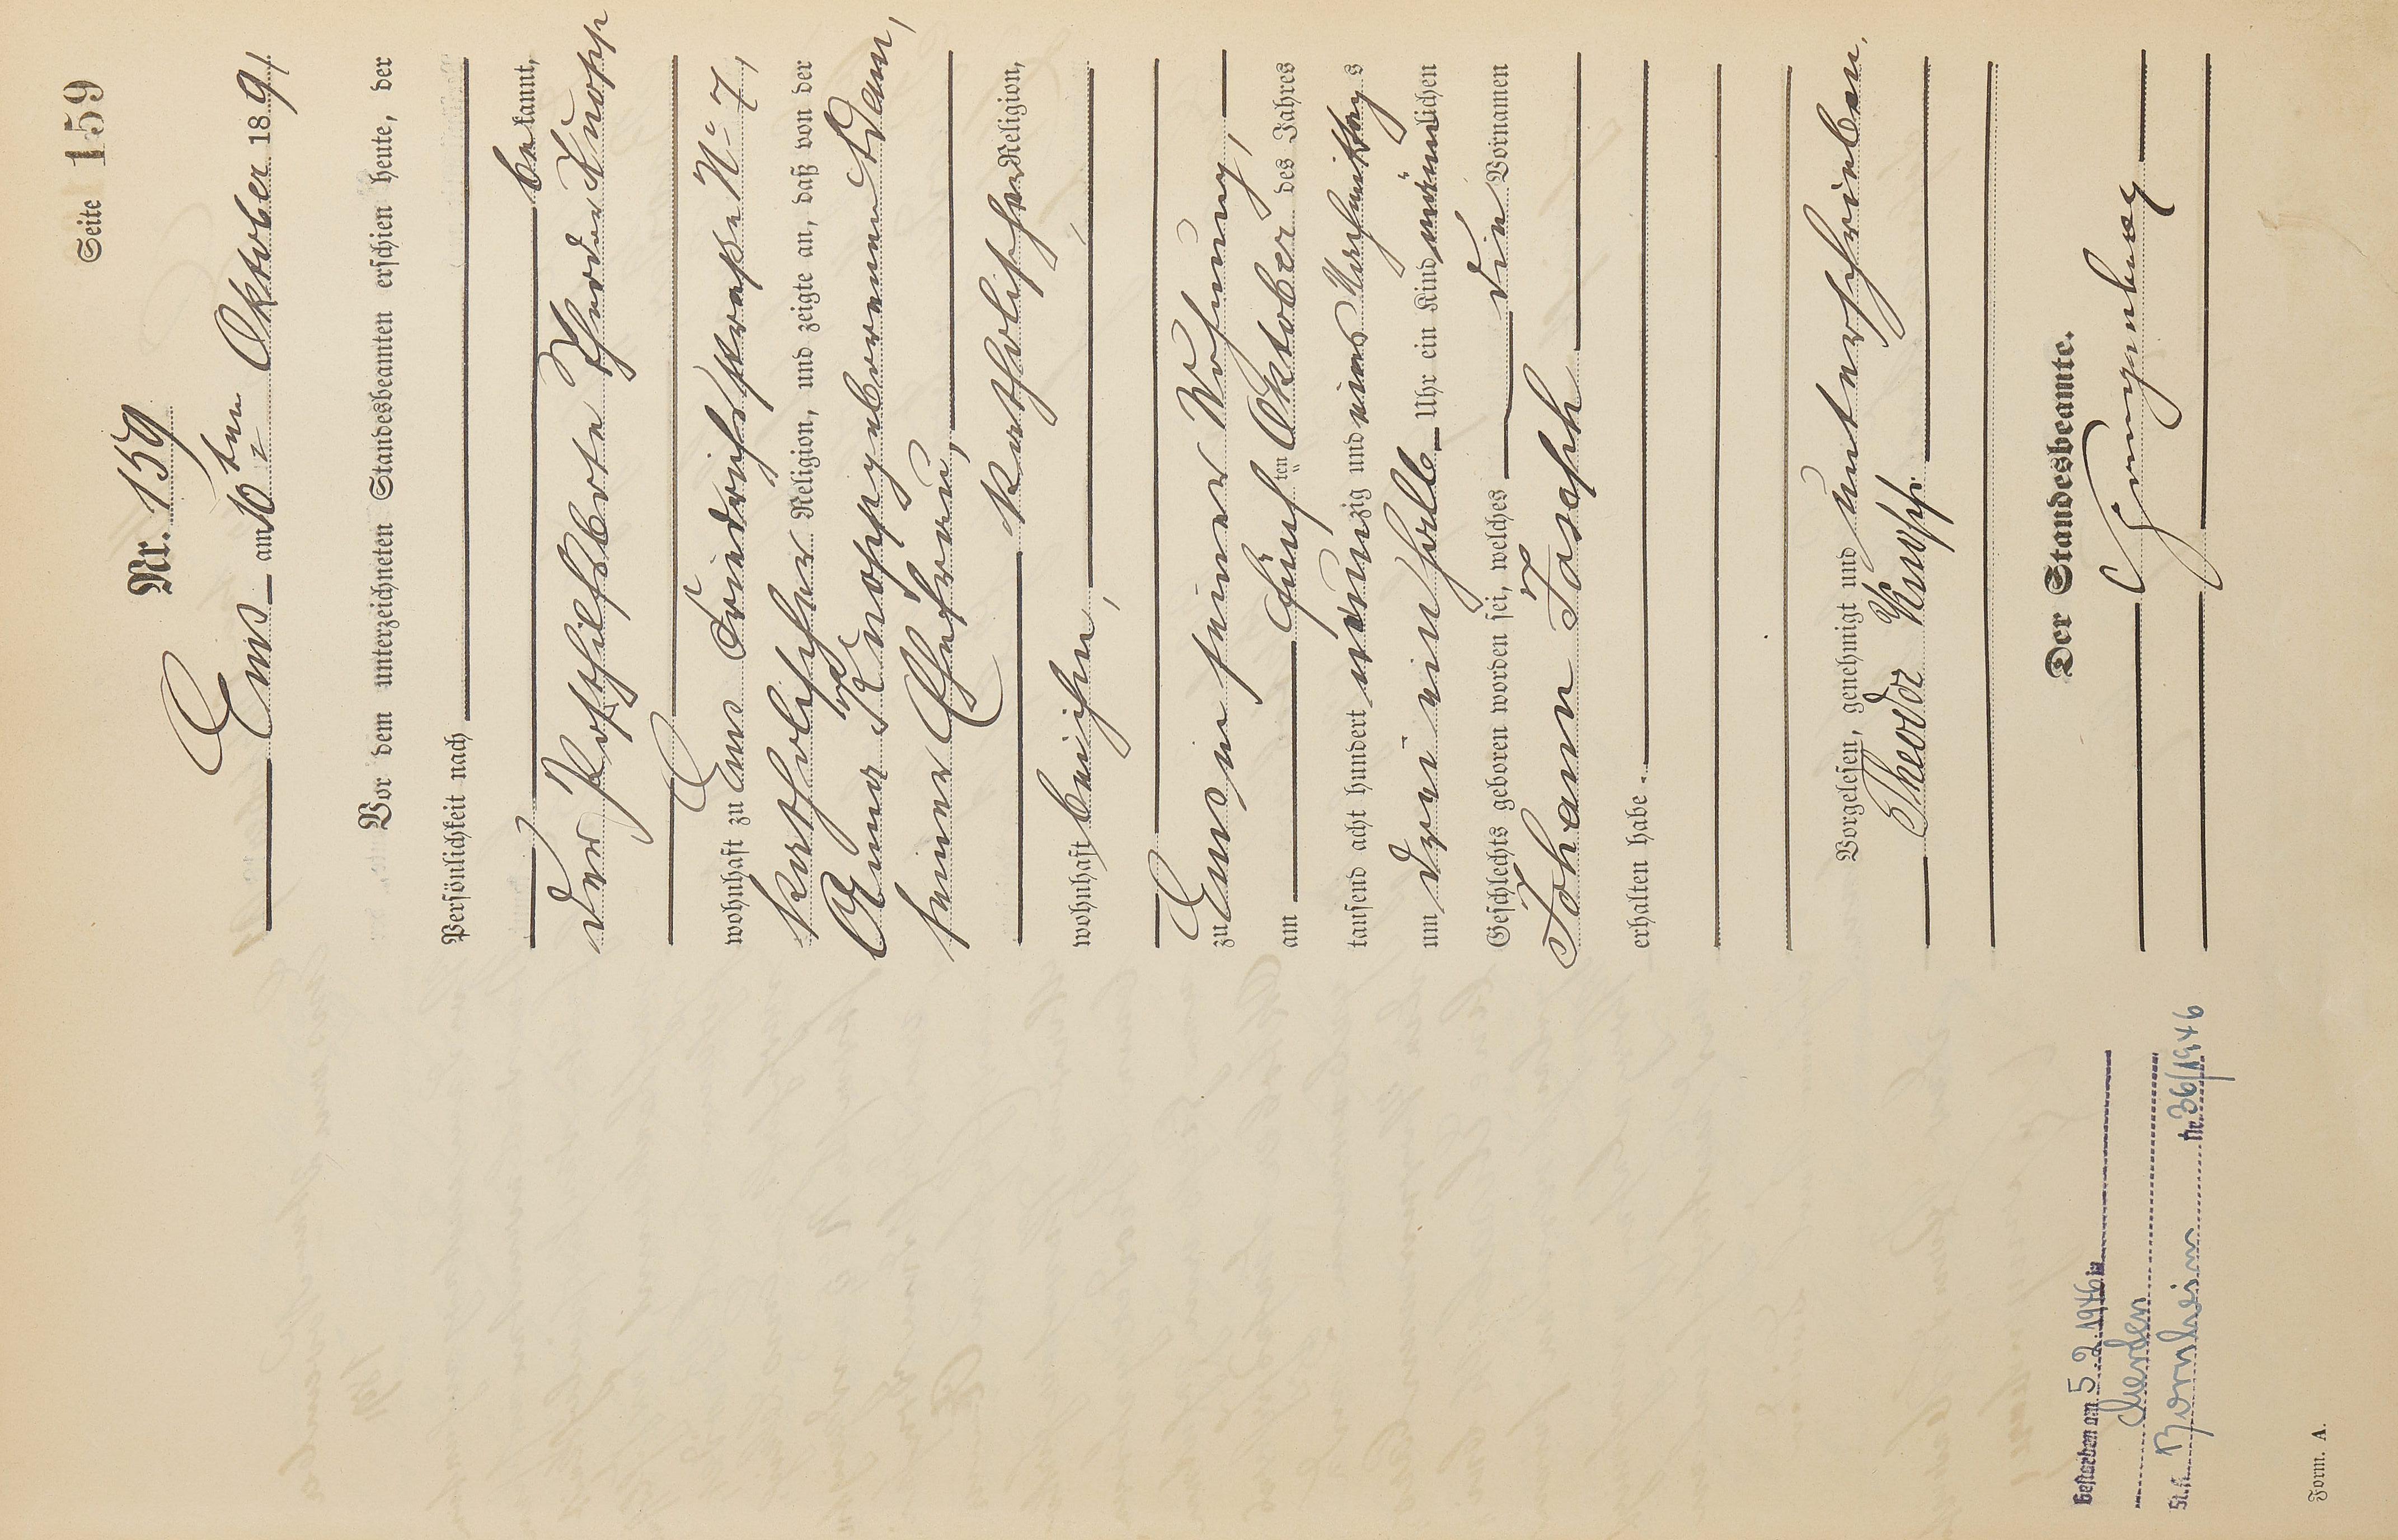 Seite 159
Nr. 159
Ems am 10ten Oktober 1891
Vor dem unterzeichneten Standesbeamten erschien heute, der
Persönlichkeit nach
bekannt,
der Posthilfsbote Theodor Knopp
wohnhaft zu Ems Friedrichstraße No 7,
katholischer Religion, und zeigte an, daß von der
Anna Knopp geborenen Adam,
seiner Ehefrau,
katholischer Religion,
wohnhaft bei ihm,
zu Ems in seiner Wohnung,
am fünften Oktober des Jahres
tausend acht hundert neunzig und eins Nachmittags
um drei ein halb Uhr ein Kind männlichen
Geschlechts geboren worden sei, welches die Vornamen
Johann Joseph
erhalten habe.
Vorgelesen, genehmigt und unterschrieben.
Theodor Knopp.
Der Standesbeamte.
Gestorben am 5.2.1946 in
St.A. Bornheim Nr. 36/1946
Form. A.